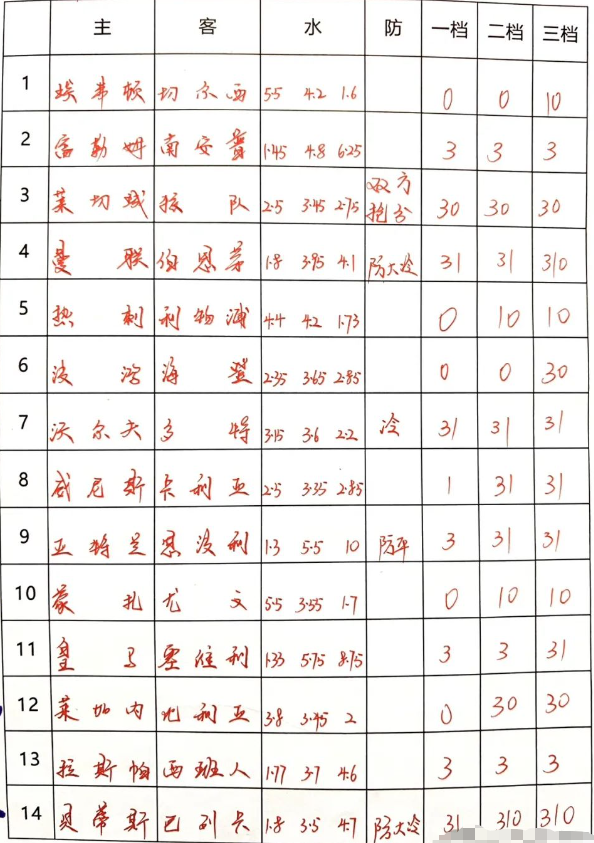 主 客 水 防 一档 二档 三档
1 埃弗顿 切尔西 5.5 4.2 1.6 0 0 10
2 富勒姆 南安普 1.45 4.8 6.25 3 3 3
3 莱切城 狼队 2.5 3.45 2.75 双方抢分 30 30 30
4 曼联 伯恩茅 1.8 3.95 4.1 防大冷 31 31 310
5 热刺 利物浦 4.4 4.2 1.73 0 10 10
6 波鸿 海登 2.35 3.65 2.85 0 0 30
7 沃尔夫 多特 3.15 3.6 2.2 冷 31 31 31
8 威尼斯 卡利亚 2.5 3.35 2.85 1 31 31
9 亚特兰 恩波利 1.3 5.5 10 防平 3 31 31
10 蒙扎 尤文 5.5 3.55 1.7 0 10 10
11 皇马 塞维利 1.33 5.75 8.75 3 3 31
12 莱加内 比利亚 3.8 3.45 2 0 30 30
13 拉斯帕 西班人 1.77 3.7 4.6 3 3 3
14 贝蒂斯 巴列卡 1.8 3.5 4.7 防大冷 31 310 310